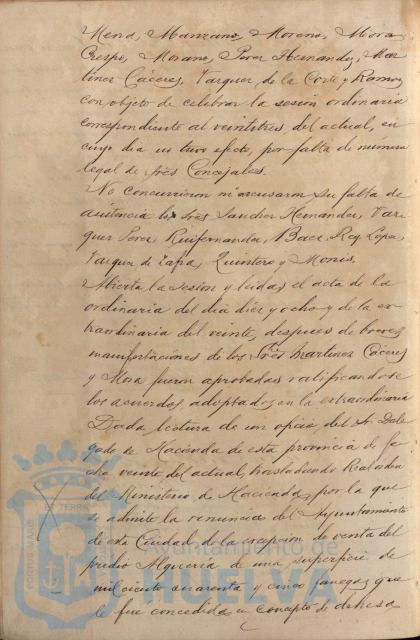 Mena, Manzano, Moreno, Mora
Crespo, Morano, Perez Hernandez, Mar-
tinez Caceres, Vazquez de la Corte y Ramos
con objeto de celebrar la sesión ordinaria
correspondiente al veintitres del actual, en
cuyo dia no tuvo efecto, por falta de numero
legal de Sres Concejales.
No concurrieron ni excusaron su falta de
asistencia los Sres Sanchez Hernandez, Vaz-
quez Perez, Ruifernandez, Baez, Rey, Lopez,
Vazquez de Zafra, Quintero y Monis.
Abierta la sesion y leidas el acta de la
ordinaria del dia diez y ocho y de la ex-
traordinaria del veinte, despues de breves
manifestaciones de los Sres Martinez Caceres
y Mora fueron aprobadas ratificandose
los acuerdos adoptados en la extraordinaria
Dada lectura de un oficio del Sr. Dele-
gado de Hacienda de esta provincia de fe-
cha veinte del actual, trasladando Real orden
del Ministerio de Hacienda, por la que
se admite la renuncia del Ayuntamiento
de esta Ciudad de la excepcion de venta del
predio Alqueria de una superficie de
mil ciento cuarenta y cinco fanegas que
le fue concedida en concepto de dehesa
Ayuntamiento de
HUELVA